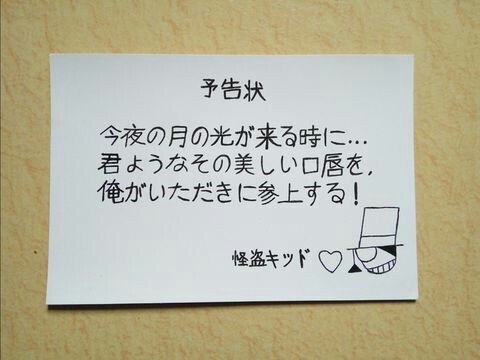 予告状
今夜の月の光が来る時に...
君ようなその美しい口唇を,
俺がいただきに参上する!
怪盗キッド♡